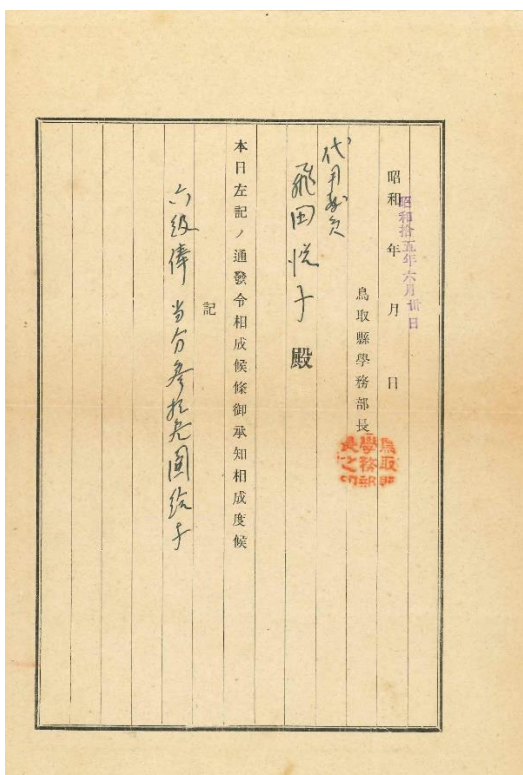 昭和拾五年六月廿日
昭和 年 月 日
鳥取縣學務部長
鳥取縣
學務部
長之印
代用教員
飛田悦子 殿
本日左記ノ通發令相成候條御承知相成度候
記
六級俸 当分参拾壱圓給与